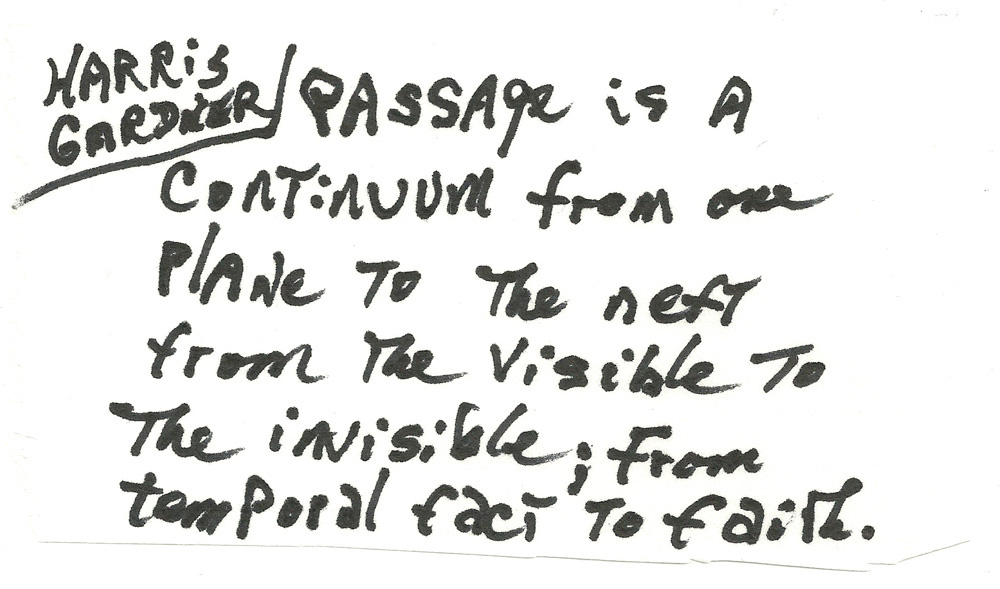 HARRiS
GARDNER/PASSAge is A
CONTiNUUM from one
PlANe To The next
from The Visible To
The invisible; from
temporal fact To faith.